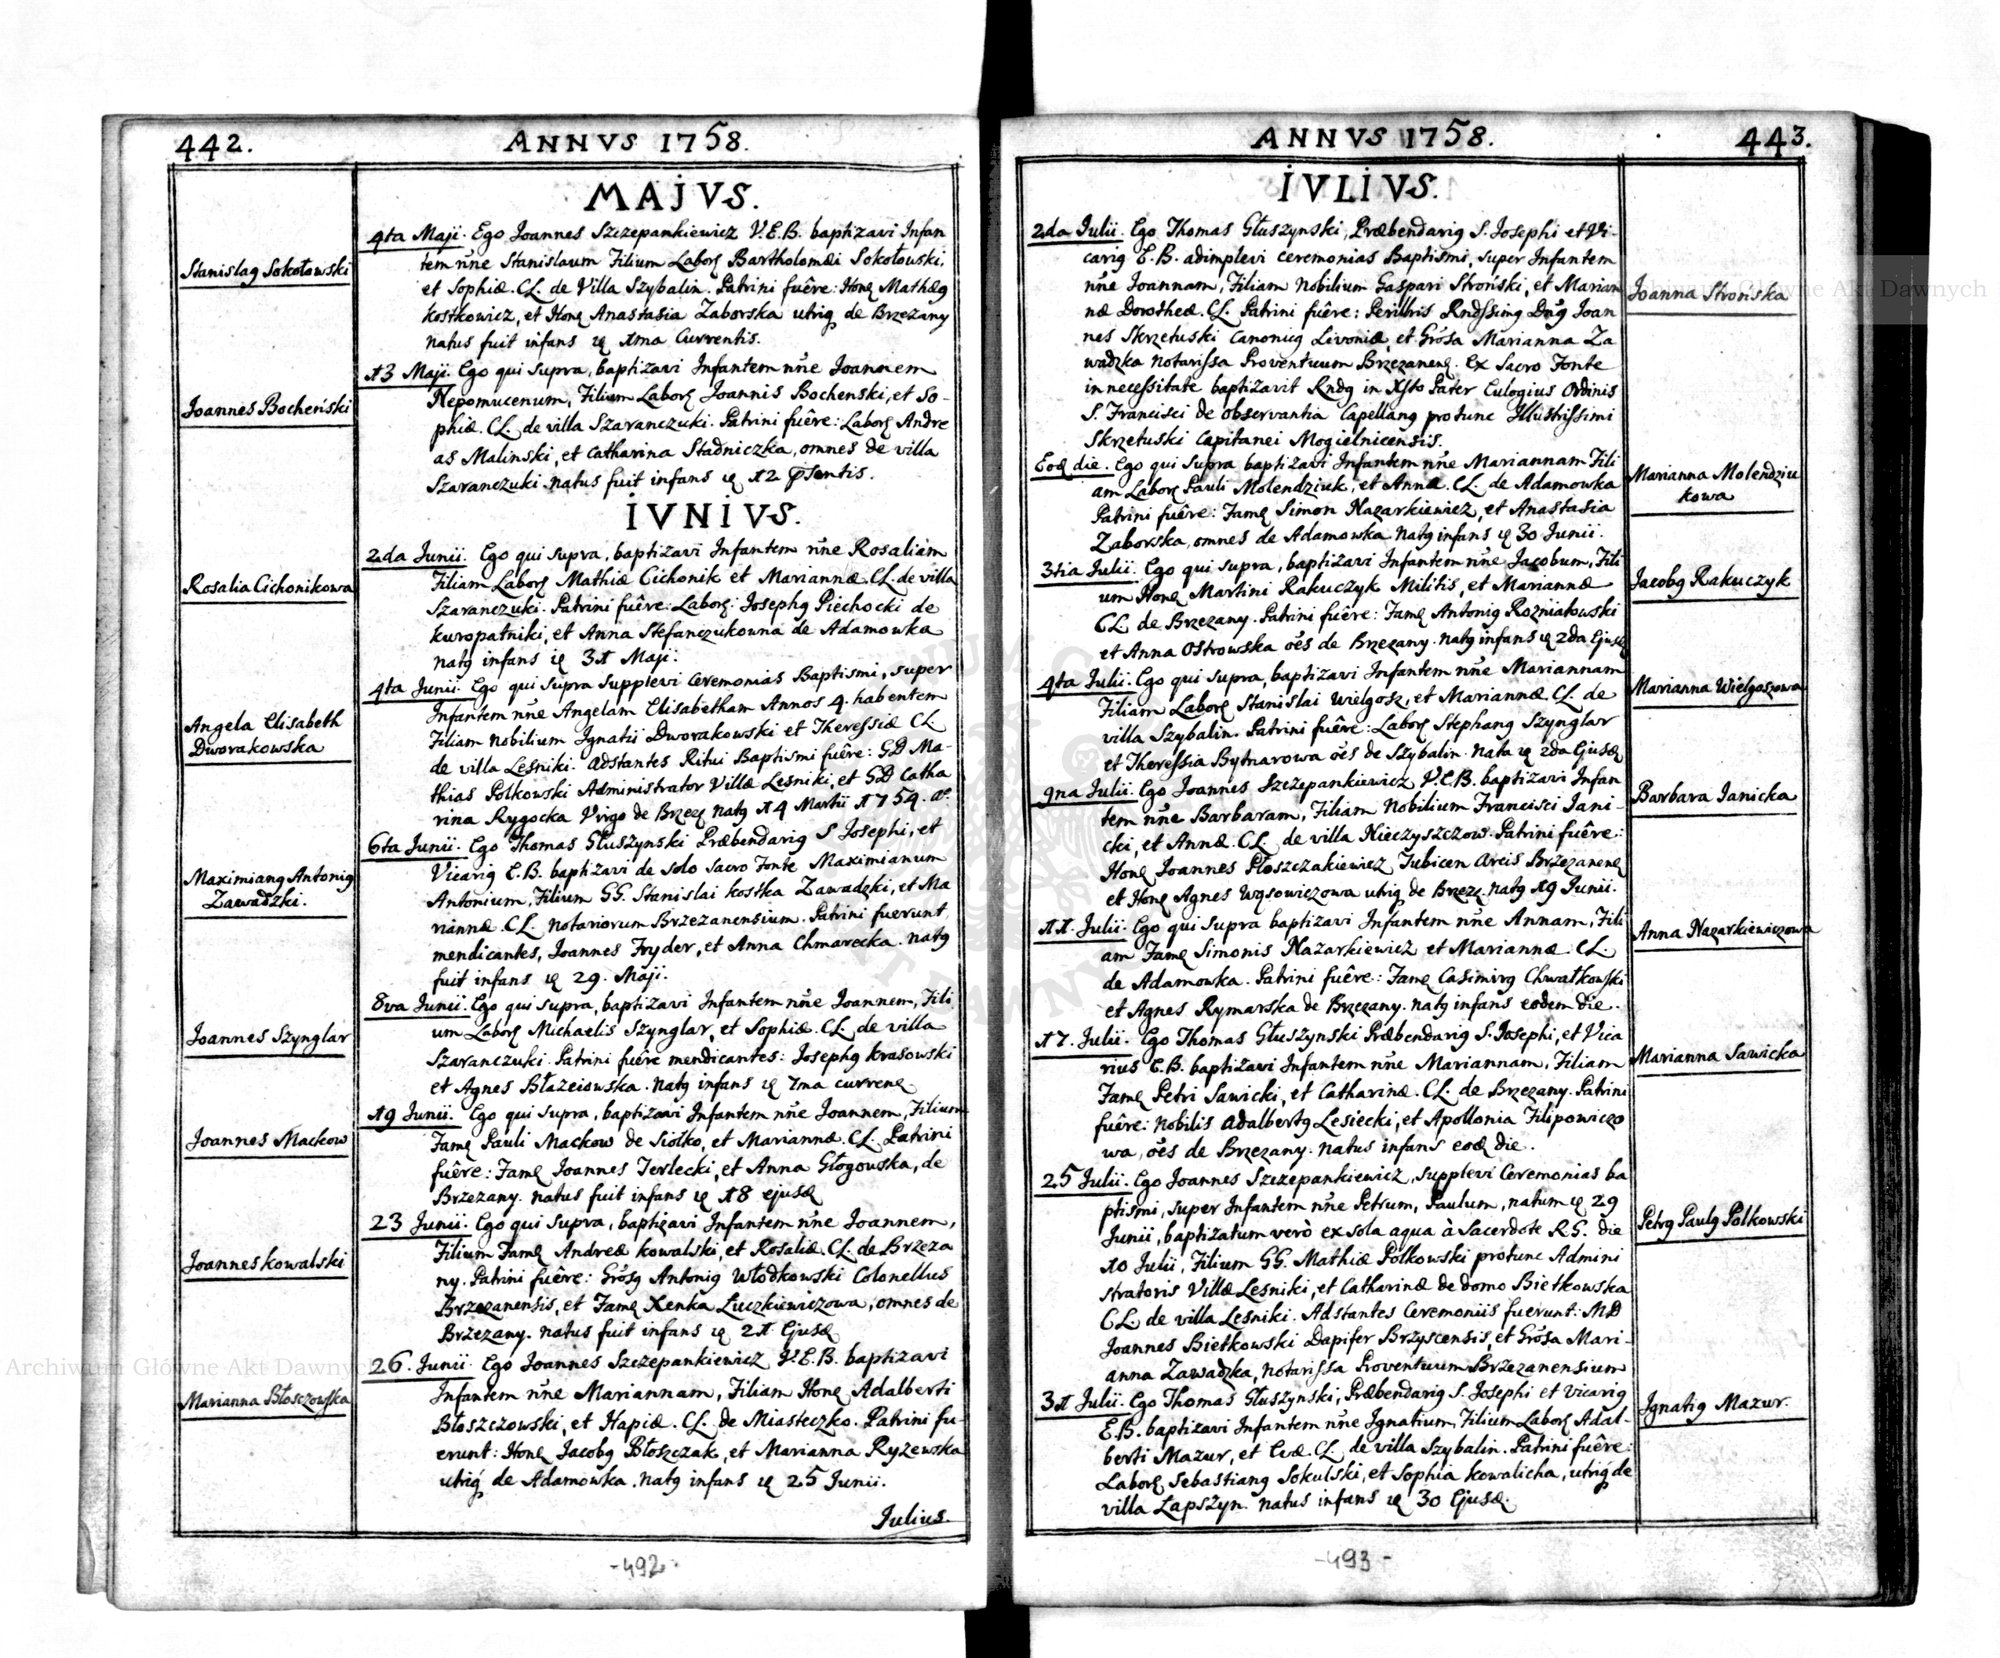 442.
ANNVS 1758.
MAJVS.
Stanislaꝯ Sokołowski
4ta Maji. Ego Joannes Szczepankiewicz V.E.B. baptizavi Infan
tem nñe Stanislaum Filium Labor Bartholomæi Sokołowski,
et Sophiæ. CL. de Villa Szybalin. Patrini fuêre: Hon Mathæꝯ
Kostkowicz, et Hon Anastasia Zaborska utriꝯ de Brzezany
natus fuit infans 1ma Currentis.
Joannes Bocheński
13 Maji. Ego qui supra, baptizavi Infantem nñe Joannem
Nepomucenum, Filium Labor Joannis Bochenski, et So-
phiæ. CL. de villa Szaranczuki. Patrini fuêre: Labor Andre
as Malinski, et Catharina Stadniczka, omnes de villa
Szaranczuki. natus fuit infans 12 psentis.
IVNIVS.
Rosalia Cichonikowa
2da Junii. Ego qui supra, baptizavi Infantem nñe Rosaliam
Filiam Labor Mathiæ Cichonik et Mariannæ. CL. de villa
Szaranczuki. Patrini fuêre: Labor: Josephꝯ Piechocki de
Kuropatniki, et Anna Stefanczukowna de Adamowka
natꝯ infans 31 Maji.
Angela Elisabeth
Dworakowska
4ta Junii. Ego qui supra supplevi Ceremonias Baptismi, super
Infantem nñe Angelam Elisabetham Annos 4. habentem
Filiam Nobilium Ignatii Dworakowski et Theressiæ CL
de villa Leśniki. Adstantes Ritui Baptismi fuêre: GD Ma-
thias Polkowski Administrator Villæ Leśniki, et GD Catha
rina Rygocka Virgo de Brzez natꝯ 14 Martii 1754. aº.
Maximianꝯ Antoniꝯ
Zawadzki.
6ta Junii. Ego Thomas Głuszynski Præbendariꝯ S Josephi, et
Vicariꝯ E.B. baptizavi de solo Sacro Fonte Maximianum
Antonium, Filium GG. Stanislai Kostka Zawadzki, et Ma
riannæ. CL. Notariorum Brzezanensium. Patrini fuerunt
mendicantes, Joannes Fryder, et Anna Chmarecka. natꝯ
fuit infans 29. Maji.
Joannes Szynglar
8va Junii. Ego qui supra, baptizavi Infantem nñe Joannem, Fili
um Labor Michaelis Szynglar, et Sophiæ. CL. de villa
Szaranczuki. Patrini fuêre mendicantes: Josephꝯ Krasowski
et Agnes Błazeiowska. natꝯ infans 7ma curren
Joannes Mackow
19 Junii. Ego qui supra, baptizavi Infantem nñe Joannem, Filium
Fam Pauli Mackow de Siołko, et Mariannæ. CL. Patrini
fuêre: Fam Joannes Terlecki, et Anna Głogowska, de
Brzezany. natus fuit infans 18 ejusd
Joannes Kowalski
23 Junii. Ego qui supra, baptizavi Infantem nñe Joannem,
Filium Fam Andreæ Kowalski, et Rosaliæ. CL. de Brzeza
ny. Patrini fuêre: Grosꝯ Antoniꝯ Włodkowski Colonellus
Brzezanensis, et Fam Xenka Łuczkiewiczowa, omnes de
Brzezany. natus fuit infans 21. Ejusd
Marianna Błosczowska
26. Junii. Ego Joannes Szczepankiewicz V.E.B. baptizavi
Infantem nñe Mariannam, Filiam Hon Adalberti
Błoszczowski, et Hapiæ. CL. de Miasteczko. Patrini fu
erunt: Hon Jacobꝯ Błoszczak, et Marianna Ryzewska
utriꝯ de Adamowka. natꝯ infans 25 Junii.
Julius
-492-
443.
ANNVS 1758.
IVLIVS.
2da Julii. Ego Thomas Głuszynski, Præbendariꝯ S. Josephi et Vi-
cariꝯ E.B. adimplevi ceremonias Baptismi, super Infantem
nñe Joannam, Filiam Nobilium Gaspari Stroński, et Marian
næ Dorotheæ. CL. Patrini fuêre: Perillris Rndssimꝯ Dnꝯ Joan
nes Skrzetuski Canonicꝯ Livoniæ, et Grosa Marianna Za
wadzka Notarissa Proventuum Brzezanen. Ex Sacro Fonte
in necessitate baptizavit Rndꝯ in Xsto Pater Eulogius Ordinis
S. Francisci de observantia Capellanꝯ protunc Illustrissimi
Skrzetuski Capitanei Mogielnicensis.
Joanna Strońska
Eod die. Ego qui supra baptizavi Infantem nñe Mariannam Fili
am Labor Pauli Molendziuk, et Annæ. CL. de Adamowka
Patrini fuêre: Fam Simon Nazarkiewicz, et Anastasia
Zaborska, omnes de Adamowka. natꝯ infans 30 Junii.
Marianna Molendziu
kowa
3tia Julii. Ego qui supra, baptizavi Infantem nñe Jacobum, Fili
um Hon Martini Rakuczyk Militis, et Mariannæ
CL. de Brzezany. Patrini fuêre: Fam Antoniꝯ Rozniatowski
et Anna Ostrowska oẽs de Brzezany. natꝯ infans 2da Ejusd
Jacobꝯ Rakuczyk
4ta Julii. Ego qui supra, baptizavi Infantem nñe Mariannam
Filiam Labor Stanislai Wielgosz, et Mariannæ CL. de
villa Szybalin. Patrini fuêre: Labor Stephanꝯ Szynglar
et Theressia Bytnarowa oẽs de Szybalin. nata 2da Ejusd
Marianna Wielgoszowa
9na Julii. Ego Joannes Szczepankiewicz V.E.B. baptizavi Infan
tem nñe Barbaram, Filiam Nobilium Francisci Jani-
cki, et Annæ. CL. de villa Nieczyszczow. Patrini fuêre:
Hon Joannes Płoszczakiewicz Tubicen Arcis Brzezanen
et Hon Agnes Wąsowiczowa utriꝯ de Brzez. natꝯ 19 Junii.
Barbara Janicka
11. Julii. Ego qui supra baptizavi Infantem nñe Annam, Fili
am Fam Simonis Nazarkiewicz et Mariannæ CL
de Adamowka. Patrini fuêre: Fam Casimirꝯ Chwałkowski
et Agnes Rymarska de Brzezany. natꝯ infans eodem die.
Anna Nazarkiewiczowa
17. Julii. Ego Thomas Głuszynski Præbendariꝯ S. Josephi, et Vica
rius E.B. baptizavi Infantem nñe Mariannam, Filiam
Fam Petri Sawicki, et Catharinæ. CL. de Brzezany. Patrini
fuêre: Nobilis Adalbertꝯ Lesiecki, et Apollonia Filipowiczo
wa, oẽs de Brzezany. natus infans eod die.
Marianna Sawicka
25 Julii. Ego Joannes Szczepankiewicz, supplevi Ceremonias ba
ptismi, super Infantem nñe Petrum, Paulum, natum 29
Junii, baptizatum verò ex sola aqua à Sacerdote R.G. die
10 Julii, Filium GG. Mathiæ Polkowski protunc Admini
stratoris Villæ Leśniki, et Catharinæ de domo Bietkowska
CL. de villa Leśniki. Adstantes Ceremoniis fuerunt: MD
Joannes Bietkowski Dapifer Brzyscensis, et Grosa Mari-
anna Zawadzka, Notarissa Proventuum Brzezanensium
Petrꝯ Paulꝯ Polkowski
31 Julii. Ego Thomas Głuszynski, Præbendariꝯ S. Josephi et Vicariꝯ
E.B. baptizavi Infantem nñe Ignatium, Filium Labor Adal-
berti Mazur, et Evæ. CL. de villa Szybalin. Patrini fuêre:
Labor Sebastianꝯ Sokulski, et Sophia Kowalicha, utriꝯ de
villa Łapszyn. natus infans 30 Ejusd.
Ignatiꝯ Mazur.
-493-
Archiwum Główne Akt Dawnych
Archiwum Główne Akt Dawnych